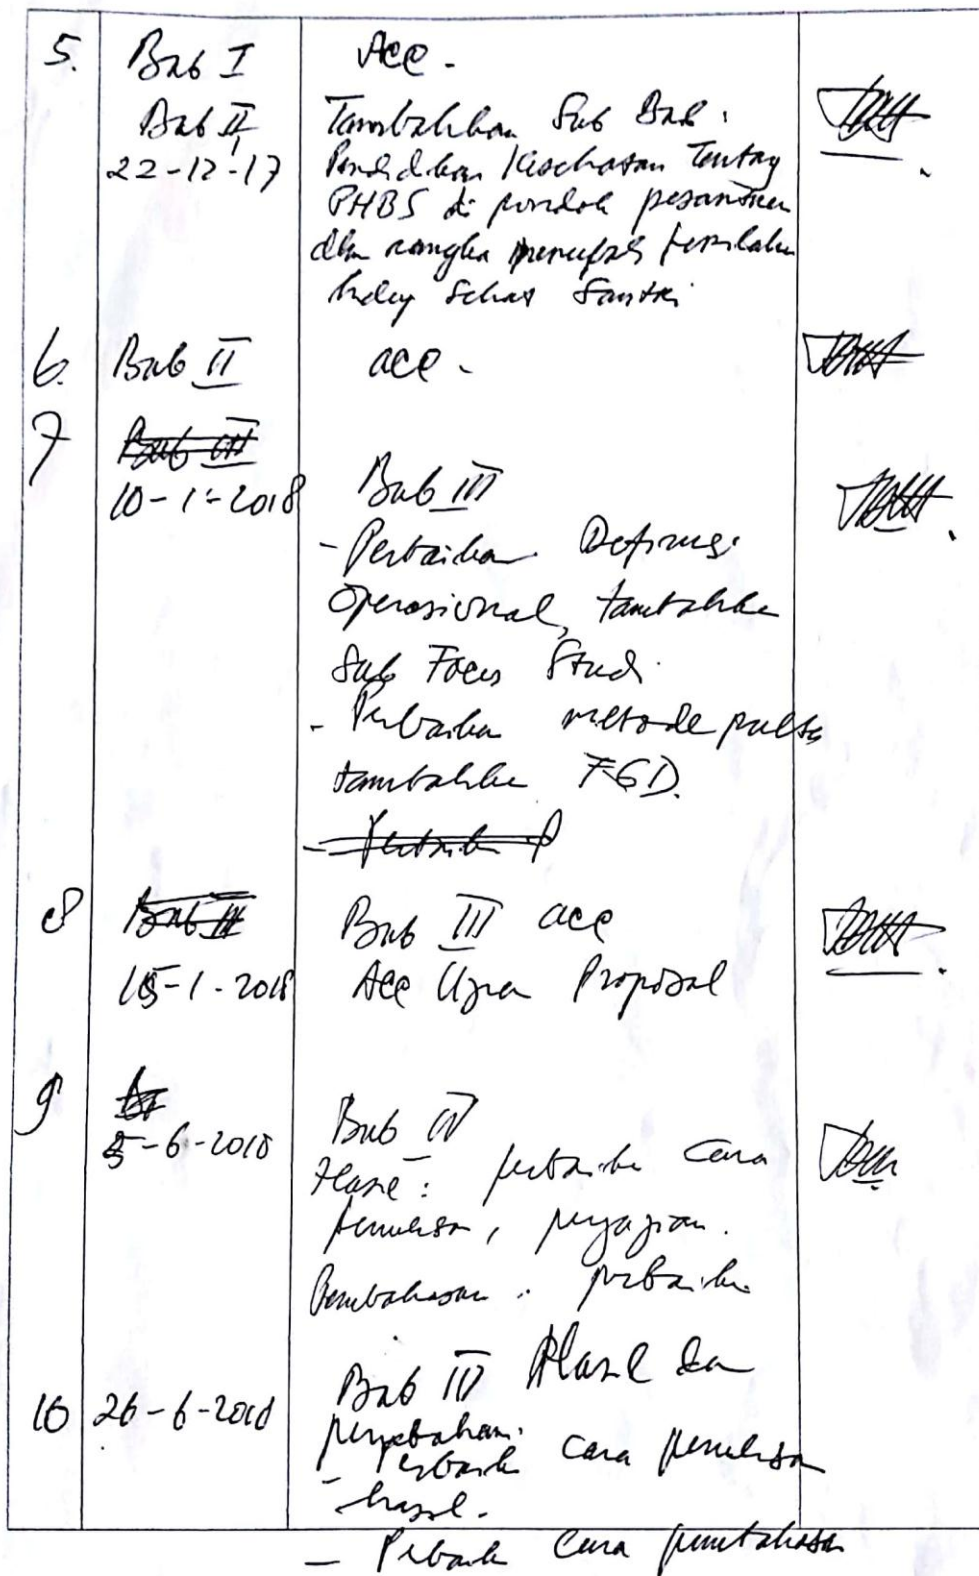 5. Bab I Acc -
Bab II Tambahkan Sub Bab :
22-12-17 Pendidikan Kesehatan Tentang
PHBS di pondok pesantren
dlm rangka perilaku
hidup Sehat Santri
6. Bab II acc -
7 Bab III
10-1-2018 Bab III
- Perbaikan Definisi
Operasional, tambahkan
Sub Focus Studi
- Perbaikan metode
tambahkan FGD.
8 Bab III Bab III acc
15-1-2018 Acc Ujian Proposal
9
5-6-2018 Bab IV
Hasil : perbaiki cara
penulisan, penyajian.
Pembahasan : perbaiki
10 26-6-2018 Bab Hasil dan
- Perbaiki cara penulisan
hasil.
- Perbaiki cara pembahasan